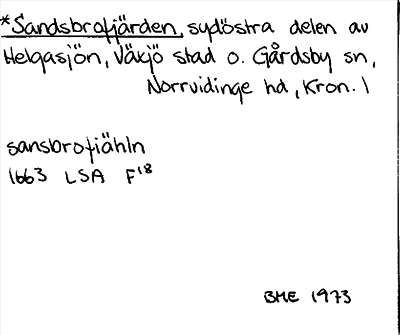 *Sandsbrofjärden, sydöstra delen av
Helgasjön, Växjö stad o. Gårdsby sn,
Norrvidinge hd, Kron. l
sansbrofiähln
1663 LSA F18
BME 1973